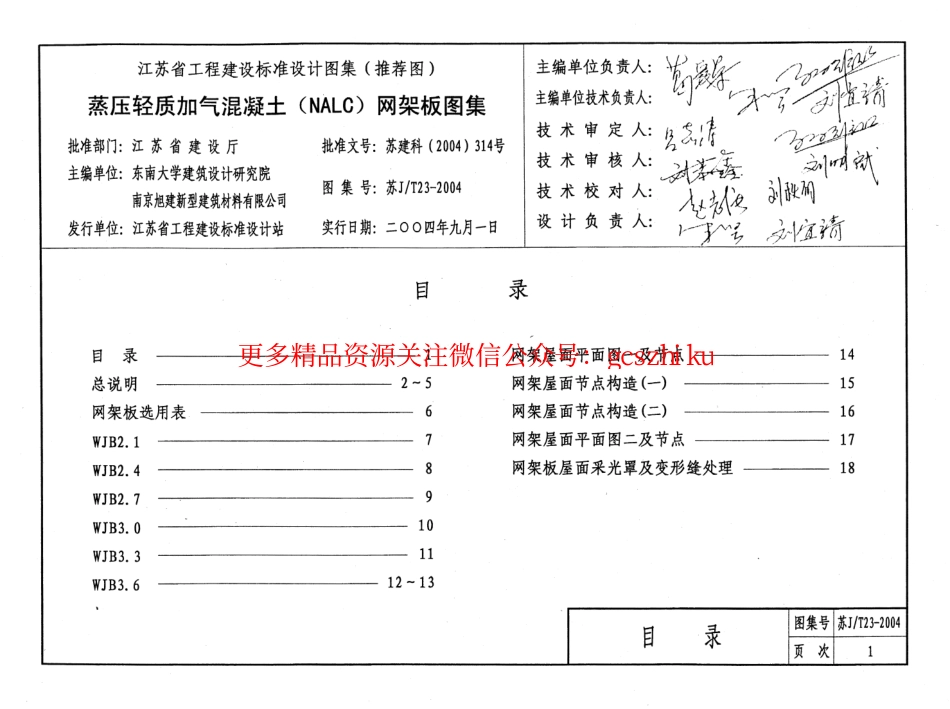 江苏省工程建设标准设计图集(推荐图)
蒸压轻质加气混凝土(NALC)网架板图集
批准部门: 江苏省建设厅
批准文号: 苏建科(2004)314号
主编单位: 东南大学建筑设计研究院
南京旭建新型建筑材料有限公司
图集号: 苏J/T23-2004
发行单位: 江苏省工程建设标准设计站
实行日期: 二〇〇四年九月一日
主编单位负责人:
主编单位技术负责人:
技术审定人:
技术审核人:
技术校对人:
设计负责人:
刘宜靖
刘宜靖
目 录
目 录 1
总说明 2~5
网架板选用表 6
WJB2.1 7
WJB2.4 8
WJB2.7 9
WJB3.0 10
WJB3.3 11
WJB3.6 12~13
网架屋面平面图一及节点 14
网架屋面节点构造(一) 15
网架屋面节点构造(二) 16
网架屋面平面图二及节点 17
网架板屋面采光罩及变形缝处理 18
更多精品资源关注微信公众号: gcszhiku
目 录
图集号 苏J/T23-2004
页 次 1